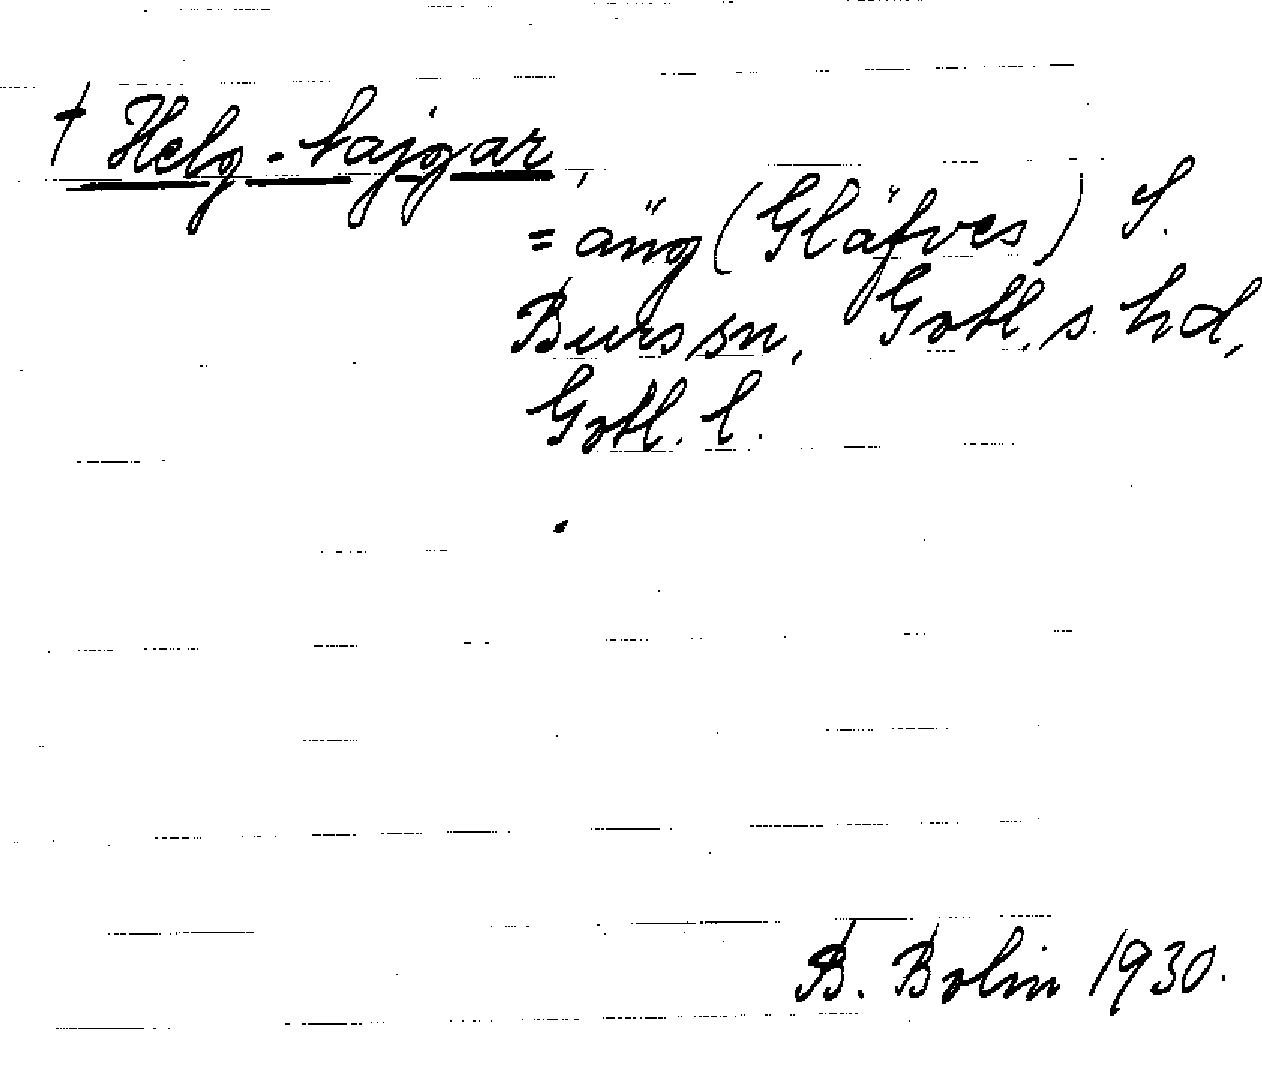 † Helg-hajgar,
= äng (Gläfves) S.
Burs sn, Gotl. s. hd,
Gotl. l.
B. Bolin 1930.